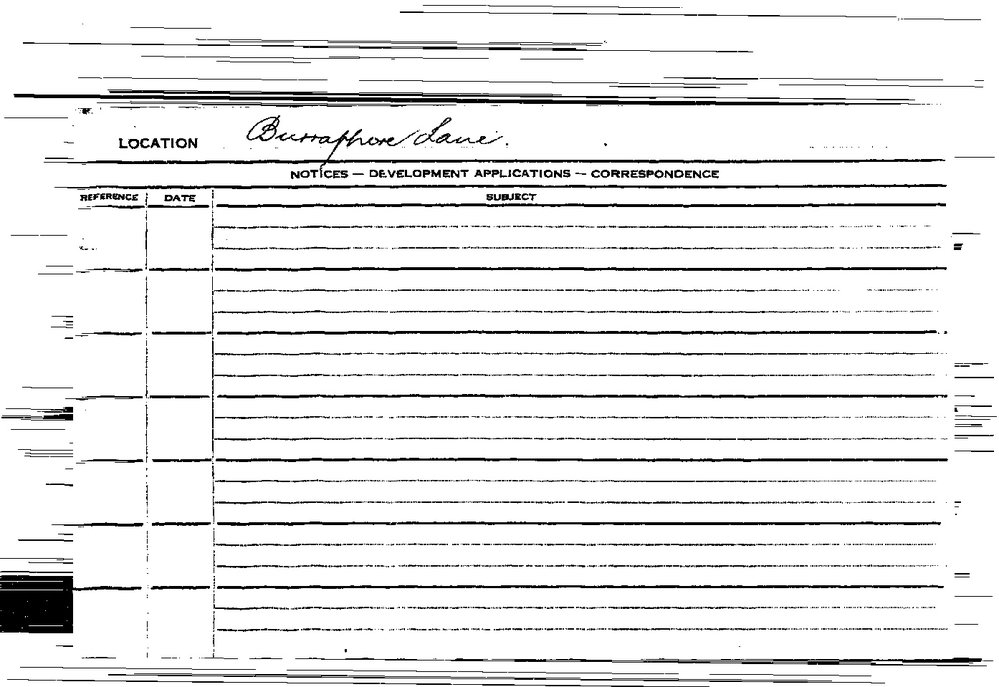 LOCATION Burraphore Lane.
NOTICES — DEVELOPMENT APPLICATIONS — CORRESPONDENCE
REFERENCE DATE SUBJECT